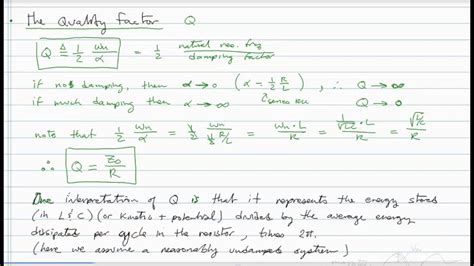 • The Quality Factor Q
Q ≜ 1/2 ωn/α = 1/2 natural res. frq / damping factor
if no damping, then α → 0 (α = 1/2 R/L), ∴ Q → ∞
if much damping, then α → ∞ series
note that 1/2 ωn/α = 1/2 ωn / 1/2 R/L = ωn · L / R = 1/√LC · L / R = √L/C / R
∴ Q = Zo/R
One interpretation of Q is that it represents the energy stored
(in L & C) (or kinetic + potential) divided by the average energy
dissipates per cycle in the resistor, times 2π.
(here we assume a reasonably undamped system)